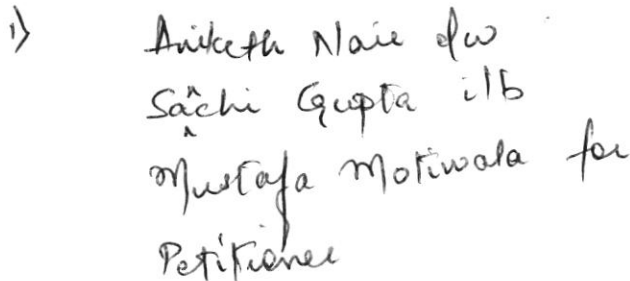 1) Aniketh Nair a/w
Sachi Gupta i/b
Mustafa Motiwala for
Petitioner